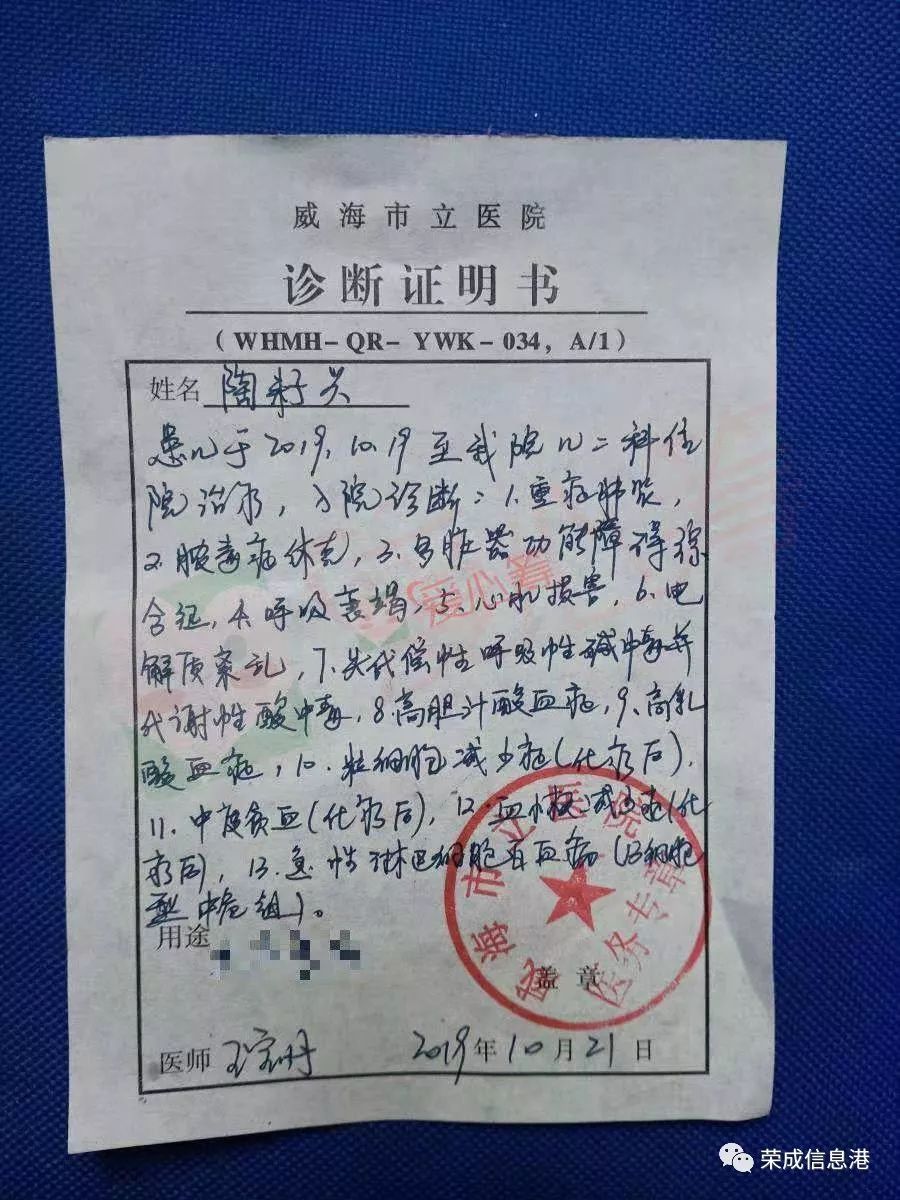 威海市立医院
诊断证明书
(WHMH-QR-YWK-034, A/1)
姓名 陶籽兴
患儿于2019.10.19至我院儿二科住
院治疗,入院诊断:1.重症肺炎,
2.脓毒症休克,3.多脏器功能障碍综
合征,4.呼吸衰竭,5.心肌损害,6.电
解质紊乱,7.失代偿性呼吸性碱中毒并
代谢性酸中毒,8.高胆汁酸血症,9.高乳
酸血症,10.粒细胞减少症(化疗后),
11.中度贫血(化疗后),12.血小板减少症(化
疗后),13.急性淋巴细胞白血病(B细胞
型 中危组)。
用途
盖章
医师
2019年10月21日
威海市立医院
医务专章
爱心筹
荣成信息港